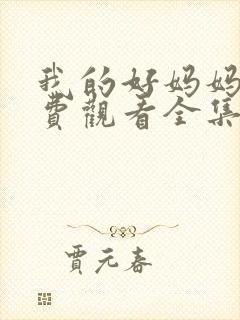 我的好妈妈
费觀看全集
贾元春